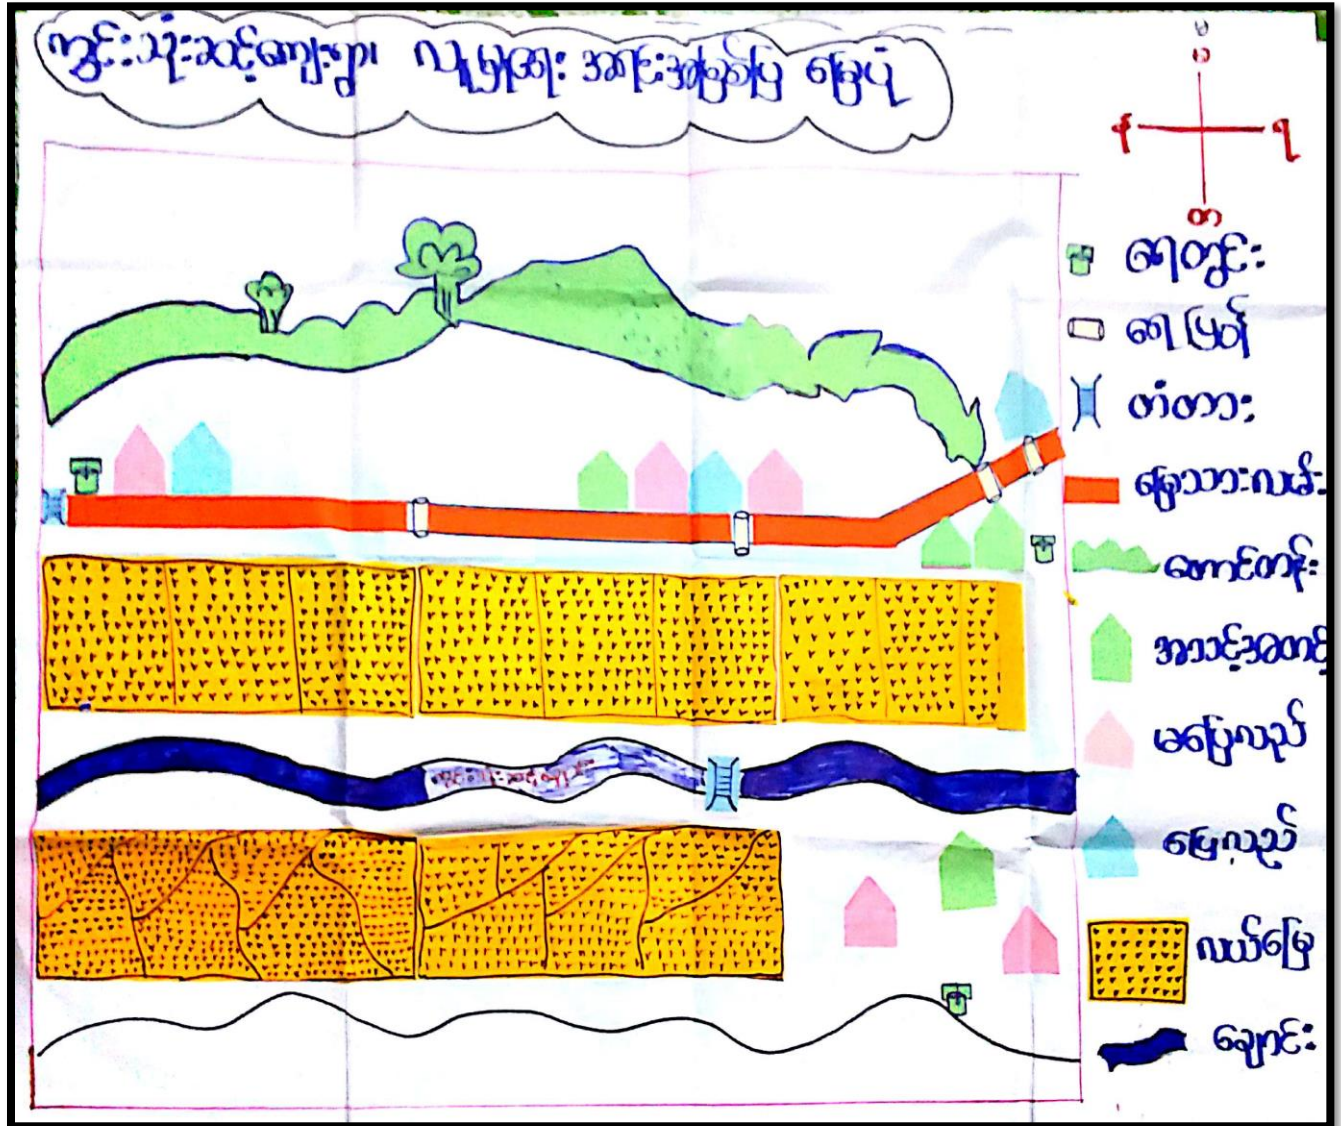 ကွင်းသုံးဆင့်ကျေးရွာ လူမှုရေး အရင်းအမြစ်ပြ မြေပုံ
မ
န ရ
တ
ရေတွင်း
ရေပြွန်
တံတား
မြေသားလမ်း
တောင်တန်း
အသင့်အတင့်
မပြေလည်
ပြေလည်
လယ်မြေ
ချောင်း